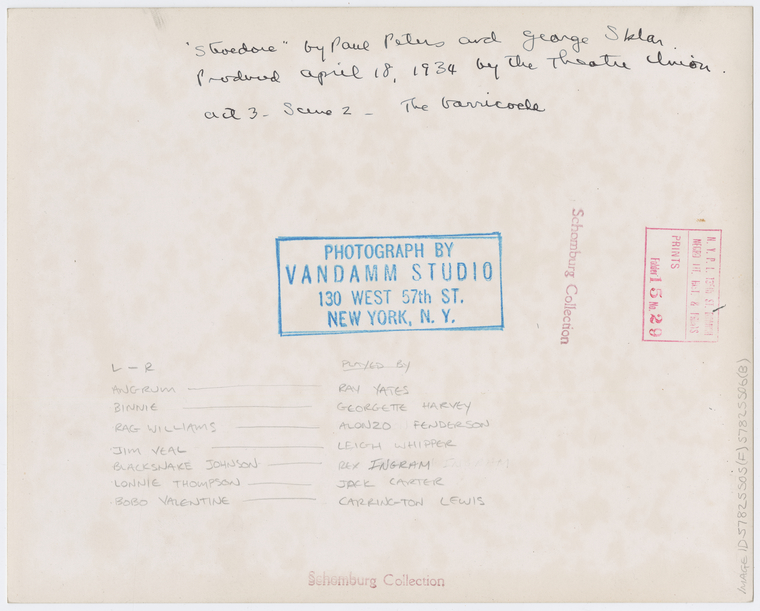 "Stvedore" by Paul Peters and George Sklar.
Produced April 18, 1934 by the Theatre Union.
act 3 - Scene 2 - The barricade
PHOTOGRAPH BY
VANDAMM STUDIO
130 WEST 57th ST.
NEW YORK, N. Y.
Schomburg Collection
N. Y. P. L. 135th ST. BRANCH
NEGRO LIT. HIST. & PRINTS
PRINTS
Folder 15 No. 29
L - R PLAYED BY
ANGRUM RAY YATES
BINNIE GEORGETTE HARVEY
RAG WILLIAMS ALONZO FENDERSON
JIM VEAL LEIGH WHIPPER
BLACKSNAKE JOHNSON REX INGRAM
LONNIE THOMPSON JACK CARTER
BOBO VALENTINE CARRINGTON LEWIS
Schomburg Collection
IMAGE ID 57825505(F) 57825506(B)